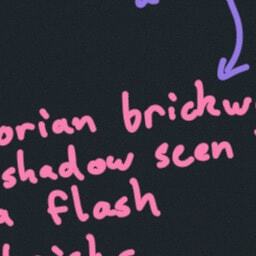 orian brickw
shadow scen
a flash